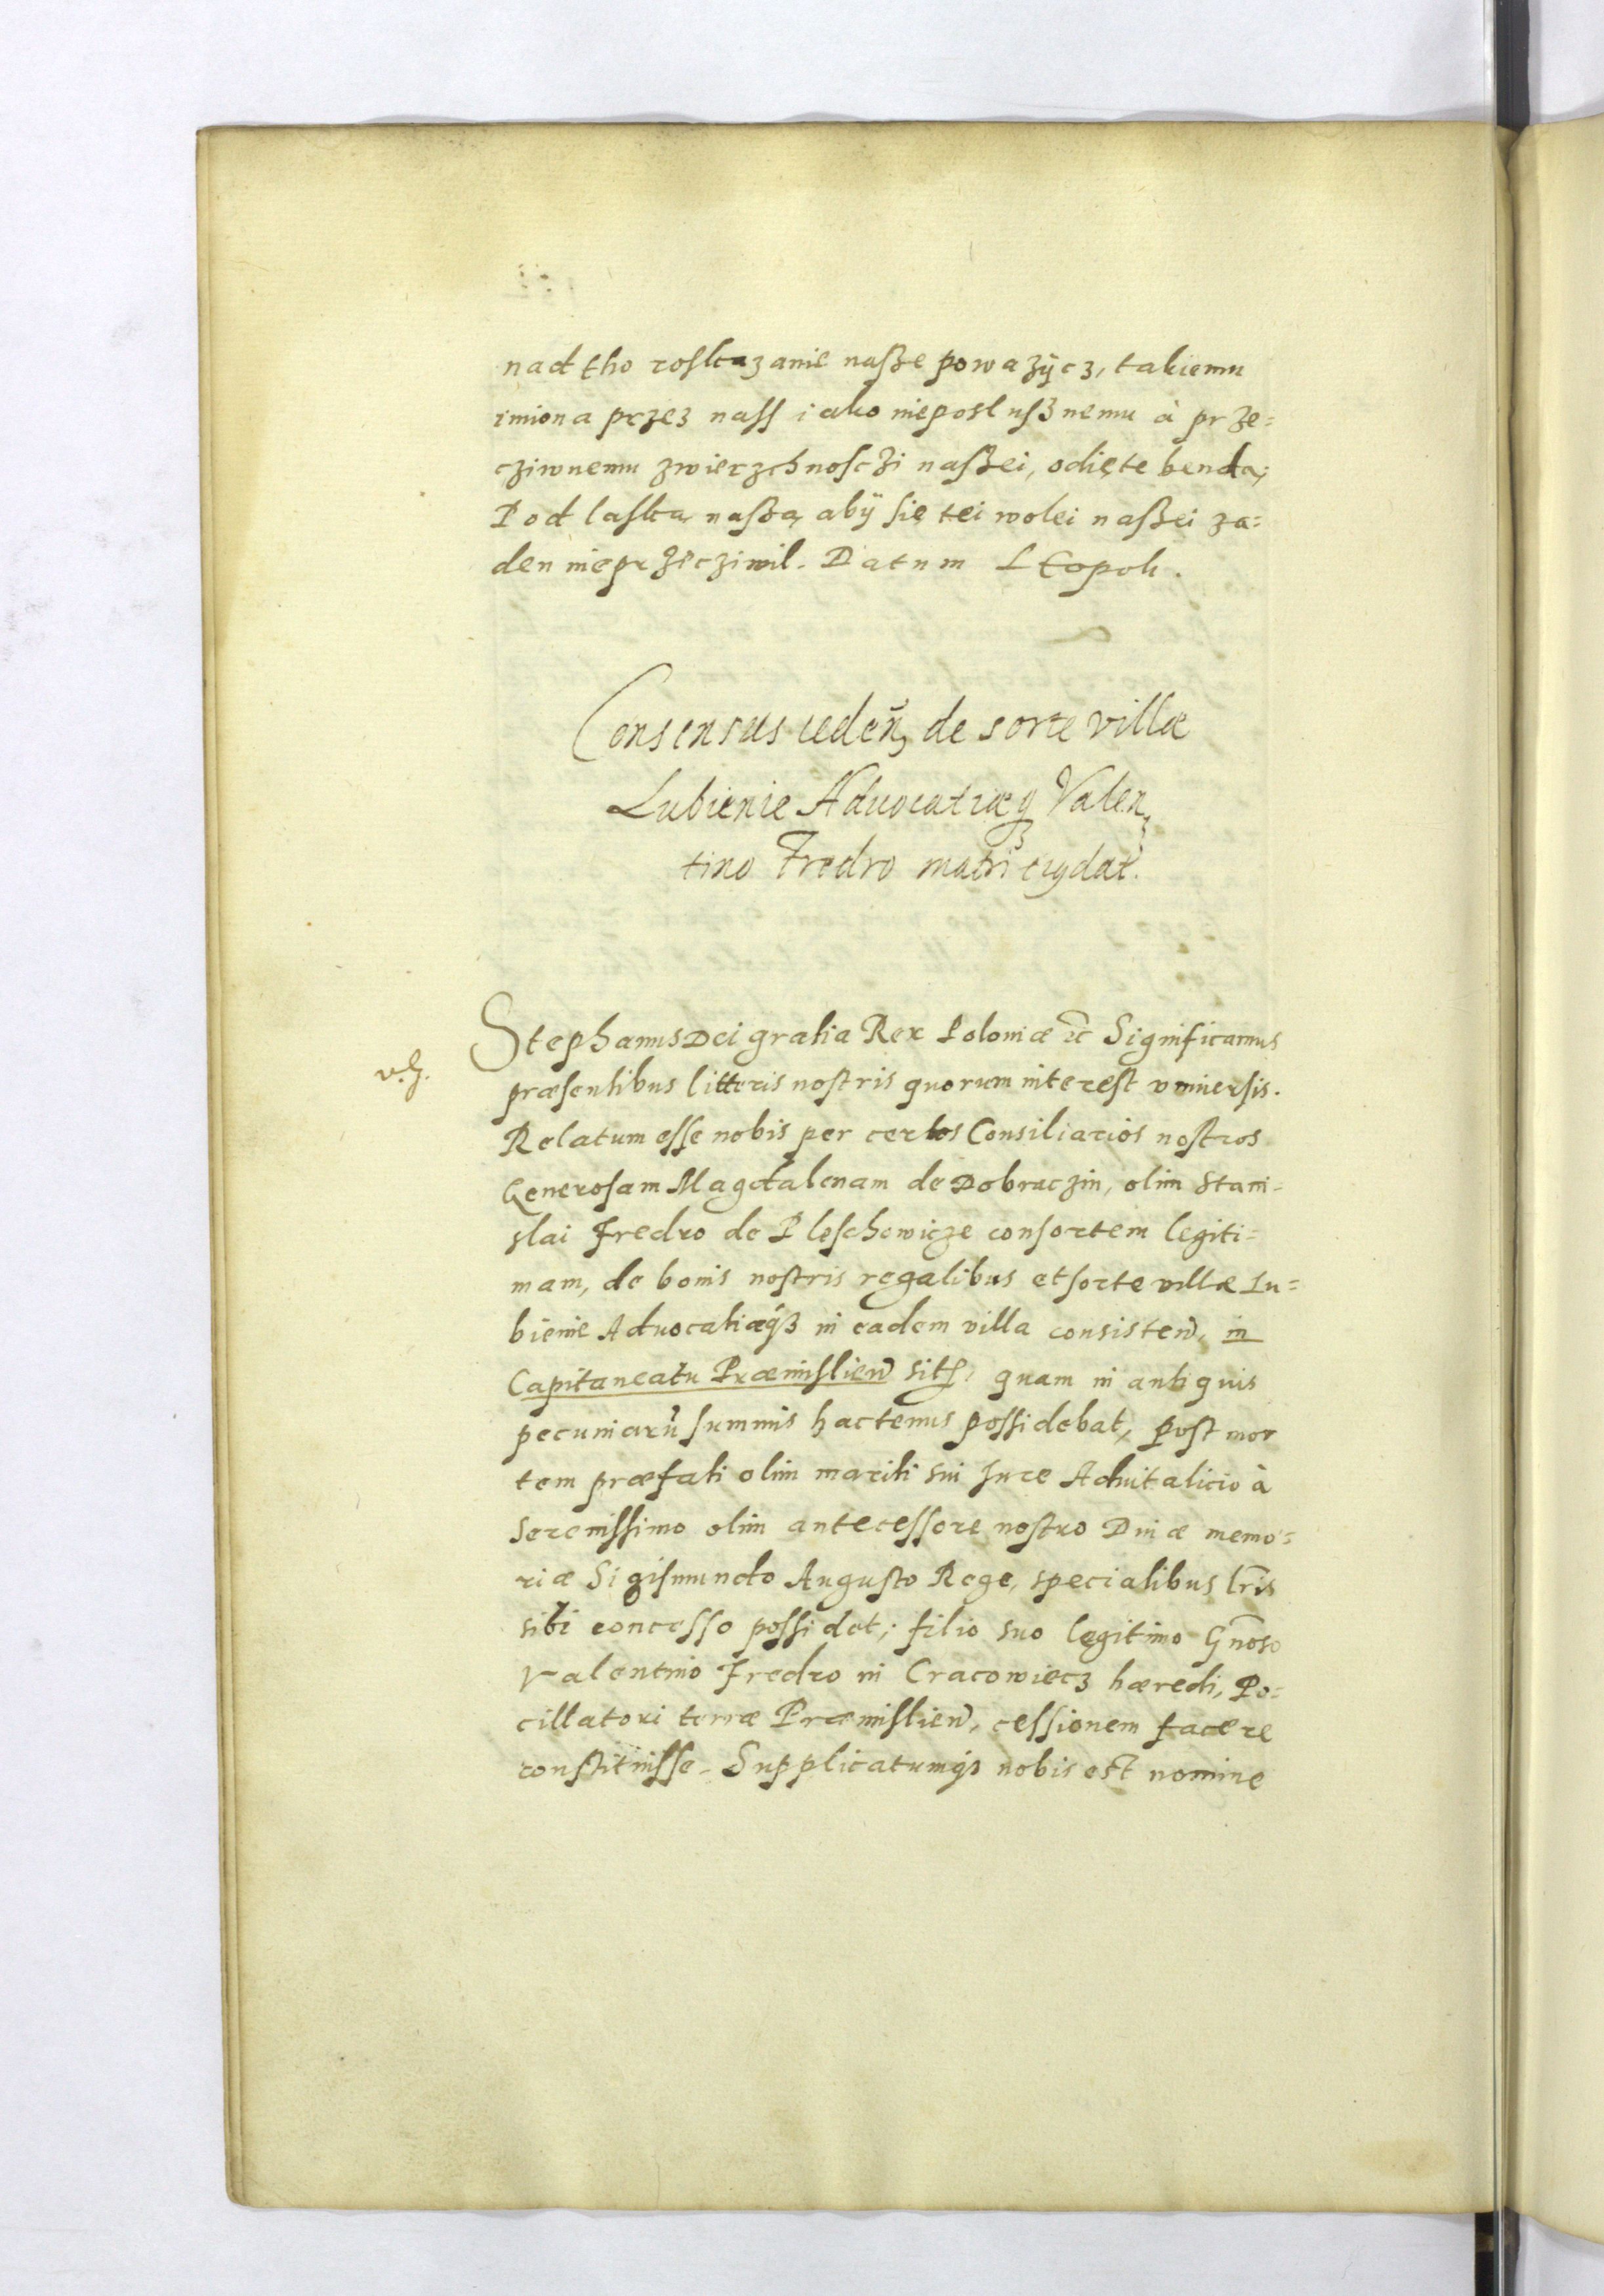 nad tho roskazanie nasze poważÿcz, takiemu
imiona przez nass iako nieposlusznemu à prze=
cziwnemu zwierzchnosczi naszei, odięte benda,
Pod laską naszą, abÿ się tei wolei naszei za=
den nieprzecziwil. Datum Leopoli.
Consensus ceden, de sorte villæ
Lubienie Aduocatiæq Valen
tino Fredro matri eius dat.
Stephanus Dei gratia Rex Poloniæ etc Significamus
v. g.
præsentibus litteris nostris quorum interest vniuersis.
Relatum esse nobis per certos Consiliarios nostros
Generosam Magdalenam de Dobraczin, olim Stani-
slai Fredro de Pleschowicze consortem legiti=
mam, de bonis nostris regalibus et sorte villæ Lu=
bienie Aduocatiæq3 in eadem villa consisten, in
Capitaneatu Præmislien sit, quam in antiquis
pecuniarū summis hactenus possidebat, post mor
tem præfati olim mariti sui Jure Aduitalicio à
Serenissimo olim antecessore nostro Diuæ memo=
riæ Sigismundo Augusto Rege, specialibus lris
sibi concesso possidet; filio suo legitimo Gnoso
Valentino Fredro in Cracowiecz hæredi, Po=
cillatori terræ Præmislien, cessionem facere
constituisse. Supplicatumq3 nobis est nomine